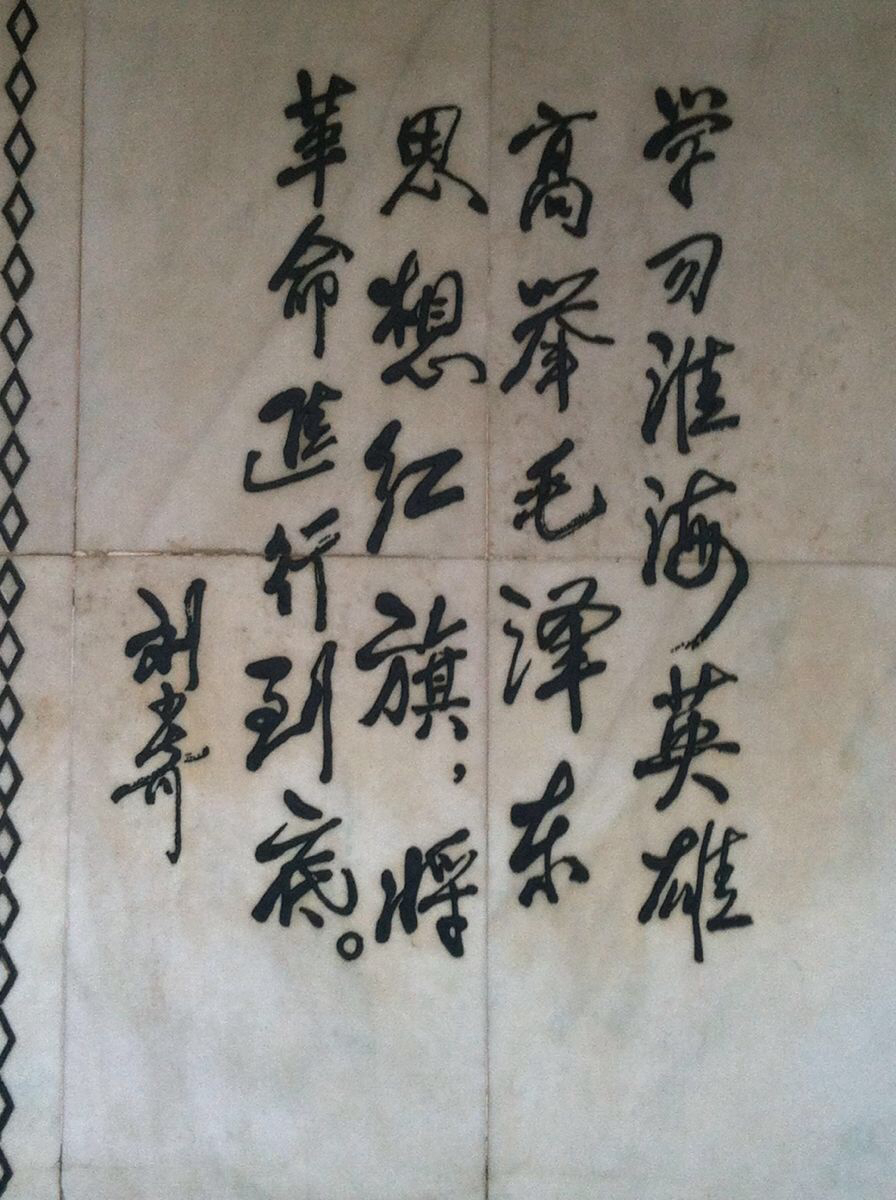 学习淮海英雄
高举毛泽东
思想红旗，将
革命进行到底。
刘少奇